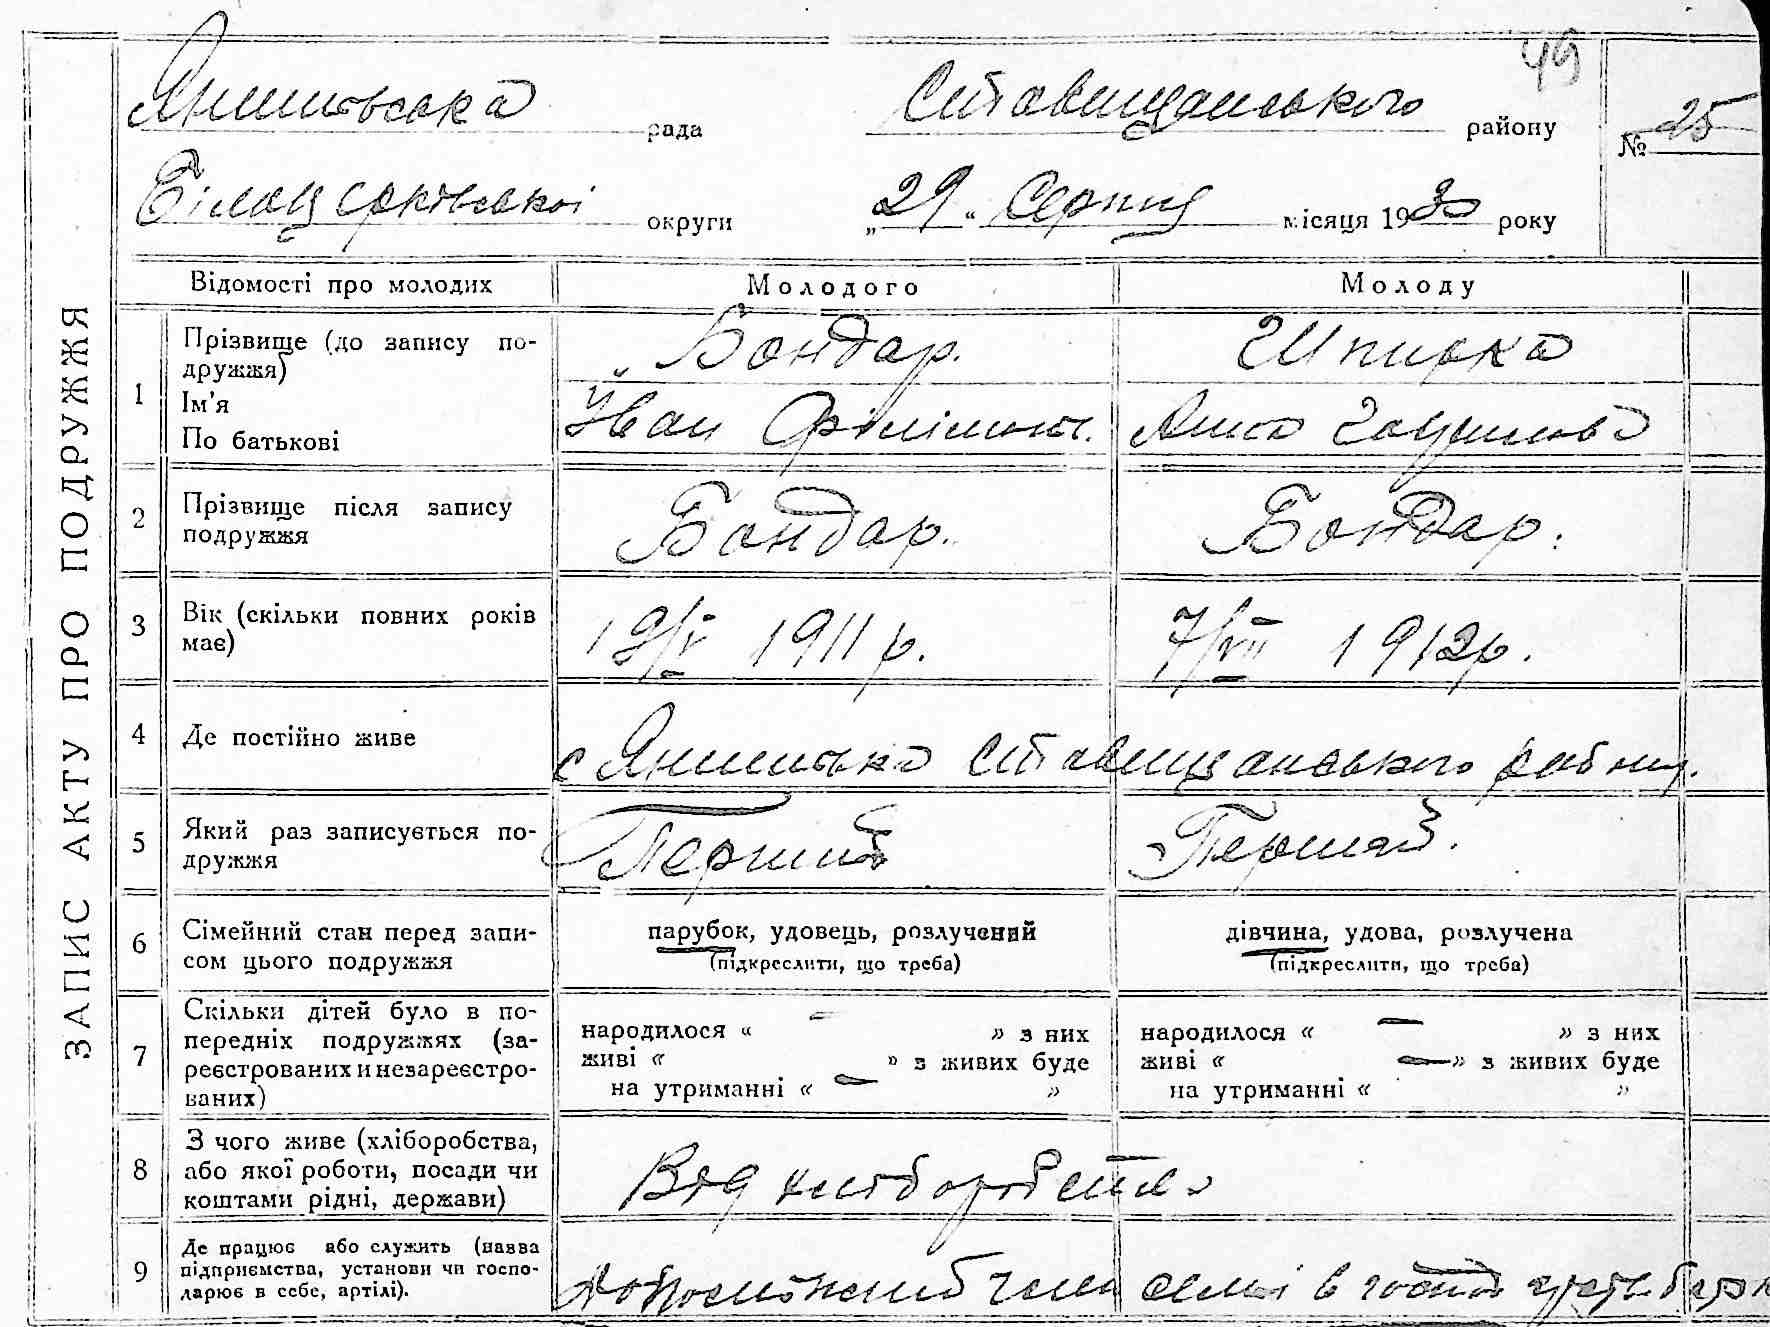 49
Янишівська рада Ставищанського району № 25
Білоцерківської округи „29" Серпня місяця 1930 року
ЗАПИС АКТУ ПРО ПОДРУЖЖЯ
Відомості про молодих Молодого Молоду
1 Прізвище (до запису по-
дружжя)
Ім'я
По батькові
Бондар. Шпирка
Іван Філімон. Анна
2 Прізвище після запису
подружжя
Бондар. Бондар.
3 Вік (скільки повних років
має)
19/V 1911 р. 7/VII 1912 р.
4 Де постійно живе
с Янишівка Ставищанського району.
5 Який раз записується по-
дружжя
Перший Перший.
6 Сімейний стан перед запи-
сом цього подружжя
парубок, удовець, розлучений
(підкреслити, що треба)
дівчина, удова, розлучена
(підкреслити, що треба)
7 Скільки дітей було в по-
передніх подружжях (за-
реєстрованих и незареєстро-
ваних)
народилося « — » з них
живі « » з живих буде
на утриманні « — »
народилося « — » з них
живі « — » з живих буде
на утриманні « »
8 З чого живе (хліборобства,
або якої роботи, посади чи
коштами рідні, держави)
Від хліборобства
9 Де працює або служить (назва
підприємства, установи чи госпо-
дарює в себе, артілі).
Допоміжний член семі в